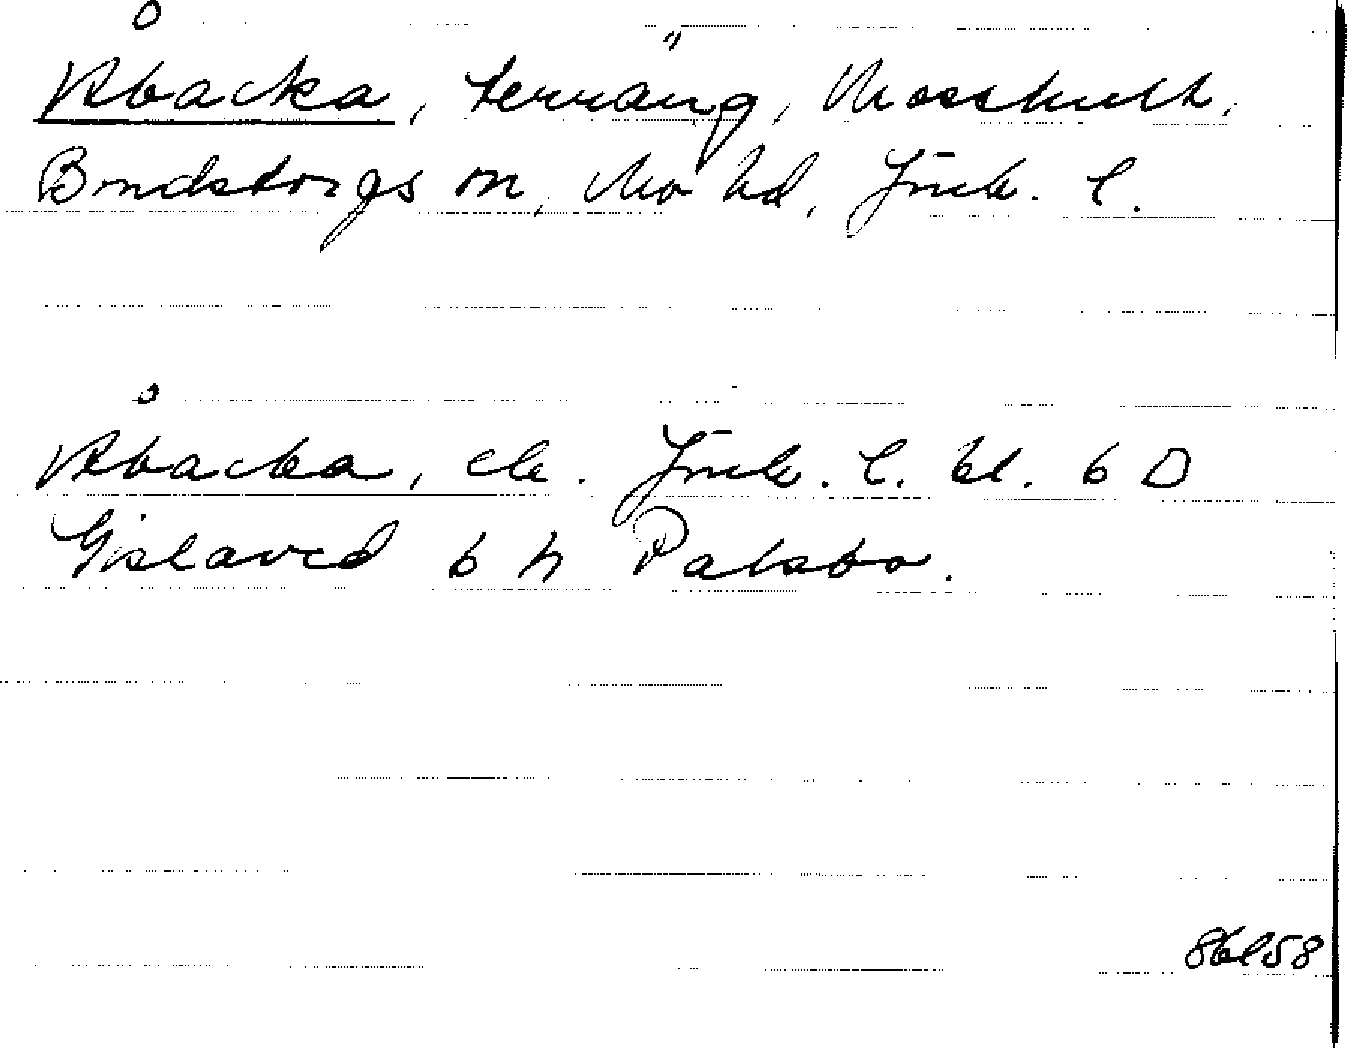 Åbacka, terräng, Mosshult,
Bondstorps sn, Mo hd, Jönk. l.
Åbacka, ek. Jönk. l. bl. 6 D
Gislaved 6 h Palsbo.
86158